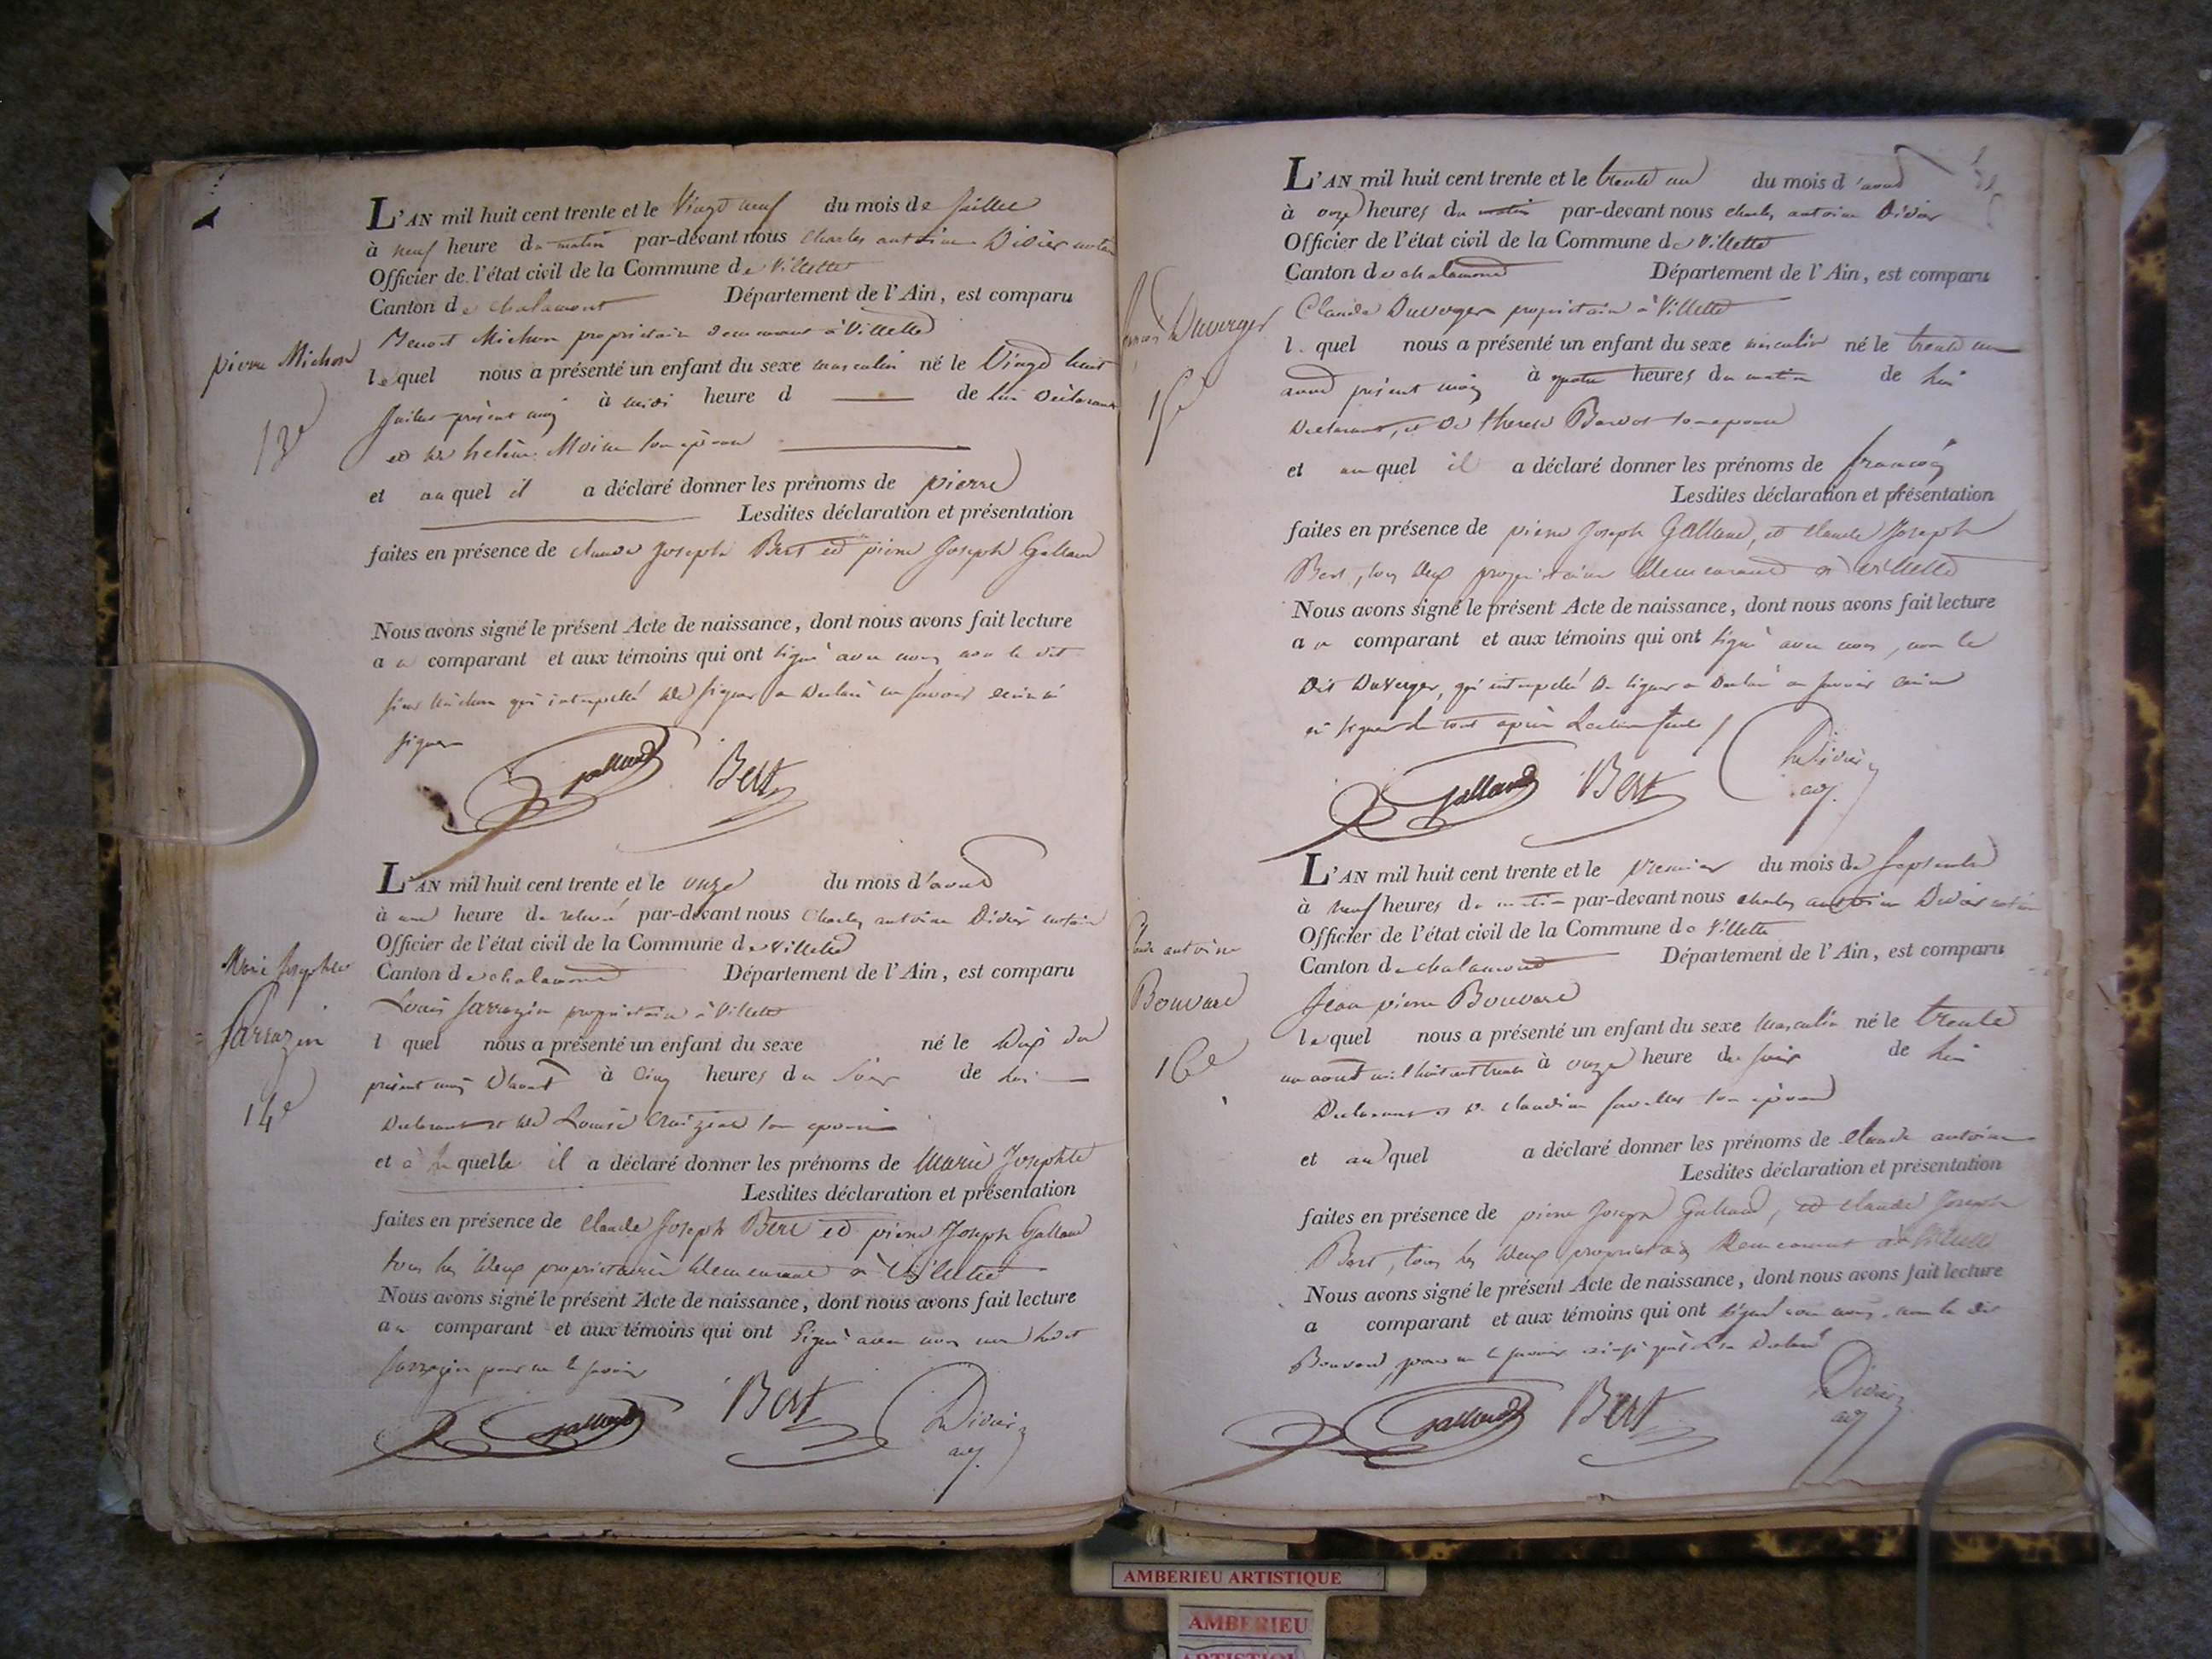 L'AN mil huit cent trente et le Vingt neuf du mois de Juillet
à neuf heure du matin par-devant nous Charles antoine Didier notaire
Officier de l'état civil de la Commune de Villette
Canton de chalamont Département de l'Ain, est comparu
Benoit Michon propriétaire demeurant à Villette
pierre Michon
lequel nous a présenté un enfant du sexe masculin né le Vingt huit
Juillet présent mois à midi heure d de lui Déclarant
13e
et de helène Moine son épouse
et auquel il a déclaré donner les prénoms de pierre
Lesdites déclaration et présentation
faites en présence de claude Joseph Bert et pierre Joseph Galland
Nous avons signé le présent Acte de naissance, dont nous avons fait lecture
au comparant et aux témoins qui ont signé avec nous non le dit
sieur Michon qui interpellé de signer a déclaré ne savoir écrire ni
signer
Galland Bert
L'AN mil huit cent trente et le onze du mois d'aout
à une heure de relevé par-devant nous Charles antoine Didier notaire
Officier de l'état civil de la Commune de Villette
Marie Josephte
Canton de chalamont Département de l'Ain, est comparu
Louis Sarrazin propriétaire à Villette
Sarrazin
l quel nous a présenté un enfant du sexe né le Dix du
présent mois D'aout à Cinq heures du Soir de lui
14e
Déclarant et de Louise son épouse
et à laquelle il a déclaré donner les prénoms de Marie Josephte
Lesdites déclaration et présentation
faites en présence de Claude Joseph Bert et pierre Joseph Galland
tous les deux propriétaires demeurant à Villette
Nous avons signé le présent Acte de naissance, dont nous avons fait lecture
au comparant et aux témoins qui ont Signé avec nous non ledit
Sarrazin pour ne le savoir
Galland Bert Didier
adj.
L'AN mil huit cent trente et le trente un du mois d'aout
à onze heures du matin par-devant nous charles antoine Didier
Officier de l'état civil de la Commune de Villette
Canton de chalamont Département de l'Ain, est comparu
Claude Duverger propriétaire à Villette
françois Duverger
l quel nous a présenté un enfant du sexe masculin né le trente un
aout présent mois à quatre heures du matin de lui
15e
Déclarant, et de therese son épouse
et auquel il a déclaré donner les prénoms de françois
Lesdites déclaration et présentation
faites en présence de pierre Joseph Galland, et claude Joseph
Bert, tous deux propriétaires demeurant à Villette
Nous avons signé le présent Acte de naissance, dont nous avons fait lecture
au comparant et aux témoins qui ont signé avec nous, non le
Dit Duverger, qui interpellé de signer a déclaré ne savoir écrire
ni signer de tout après Lecture faite
Galland Bert Didier
adj.
L'AN mil huit cent trente et le Premier du mois de Septembre
à Neuf heures du matin par-devant nous charles antoine Didier notaire
Officier de l'état civil de la Commune de Villette
Claude antoine
Canton de chalamont Département de l'Ain, est comparu
Bouvard
Jean pierre Bouvard
lequel nous a présenté un enfant du sexe Masculin né le trente
un aout mil huit cent trente à onze heure du soir de lui
16e
Déclarant et de claudine son épouse
et auquel a déclaré donner les prénoms de Claude antoine
Lesdites déclaration et présentation
faites en présence de pierre Joseph Galland, et claude Joseph
Bert, tous les deux propriétaires demeurant à Villette
Nous avons signé le présent Acte de naissance, dont nous avons fait lecture
a comparant et aux témoins qui ont signé avec nous, non le dit
Bouvard, pour ne le savoir ainsi qu'il l'a Déclaré
Galland Bert Didier
adj
AMBERIEU ARTISTIQUE
AMBERIEU
ARTISTIQUE